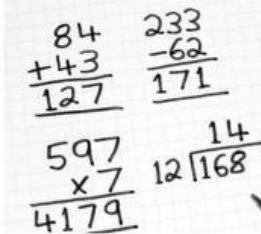 84
+43
127
233
-62
171
597
x7
4179
14
12 168